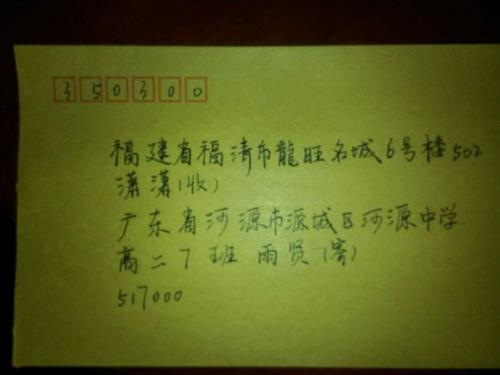 350300
福建省福清市龍旺名城6号楼502
潇潇(收)
广东省河源市源城区河源中学
高二7班 雨贤(寄)
517000